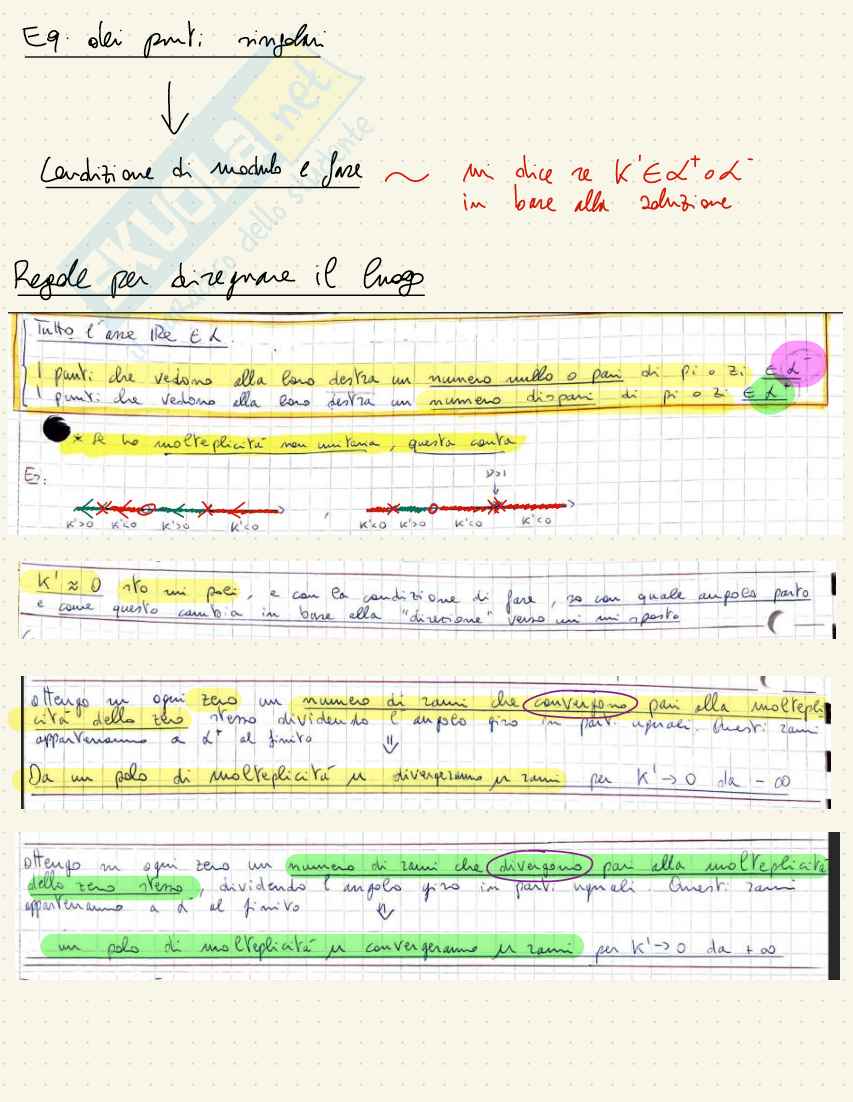 Eq. dei punti singolari
Condizione di modulo e fase ~ mi dice se K'∈L⁺ o L⁻
in base alla soluzione
Regole per disegnare il luogo
Tutto l'asse Re ∈ L.
I punti che vedono alla loro destra un numero nullo o pari di pi o zi ∈ L⁻
I punti che vedono alla loro destra un numero dispari di pi o zi ∈ L⁺
* Se ho molteplicità non unitaria, questa conta
Es:
ν>1
K'>0 K'<0 K'>0 K'<0 , K'<0 K'>0 K'<0 K'<0
K' ≈ 0 sto sui poli, e con la condizione di fase, so con quale angolo parto
e come questo cambia in base alla "direzione" verso cui mi sposto
ottengo in ogni zero un numero di rami che convergono pari alla moltepli-
cità dello zero stesso dividendo l'angolo giro in parti uguali. Questi rami
apparterranno a L⁺ al finito ⇓
Da un polo di molteplicità μ divergeranno μ rami per K'→0 da -∞
ottengo in ogni zero un numero di rami che divergono pari alla molteplicità
dello zero stesso, dividendo l'angolo giro in parti uguali. Questi rami
apparterranno a L⁻ al finito ⇓
un polo di molteplicità μ convergeranno μ rami per K'→0 da +∞
SKUOLA.net
dello studente